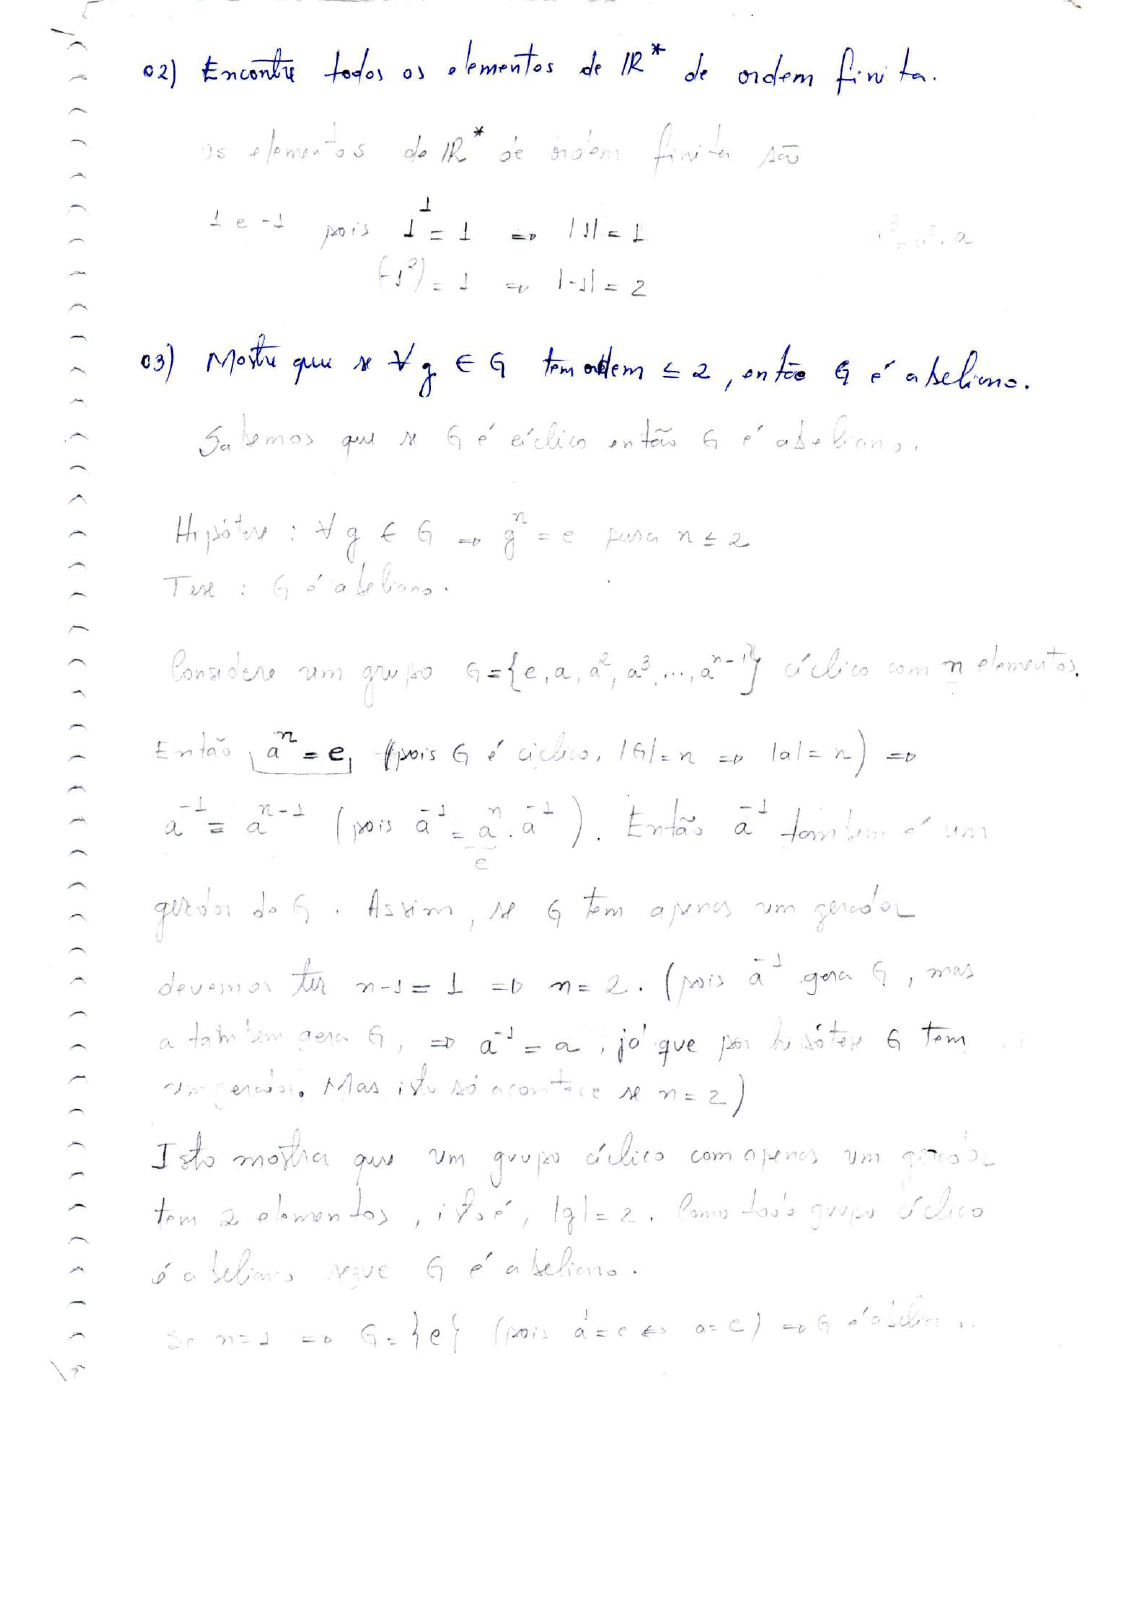 02) Encontre todos os elementos de IR* de ordem finita.
Os elementos de IR* de ordem finita são
1 e -1 pois 1¹ = 1 ⇒ |1| = 1
a
(-1²) = 1 ⇒ |-1| = 2
03) Mostre que se ∀ g ∈ G tem ordem ≤ 2, então G é abeliano.
Sabemos que se G é cíclico então G é abeliano.
Hipótese : ∀ g ∈ G ⇒ gⁿ = e para n ≤ 2
Tese : G é abeliano.
Considere um grupo G = {e, a, a², a³, ..., aⁿ⁻¹} cíclico com n elementos.
Então aⁿ = e, (pois G é cíclico, |G| = n ⇒ |a| = n) ⇒
a⁻¹ = aⁿ⁻¹ (pois a⁻¹ = aⁿ . a⁻¹). Então a⁻¹ também é um
e
gerador de G. Assim, se G tem apenas um gerador
devemos ter n-1 = 1 ⇒ n = 2. (pois a⁻¹ gera G, mas
a também gera G, ⇒ a⁻¹ = a, já que por hipótese G tem
um gerador. Mas isto só acontece se n = 2)
Isto mostra que um grupo cíclico com apenas um gerador
tem 2 elementos, isto é, |g| = 2. Como todo grupo cíclico
é abeliano segue G é abeliano.
Se n = 1 ⇒ G = {e} (pois a¹ = e ⇔ a = e) ⇒ G é abeliano.